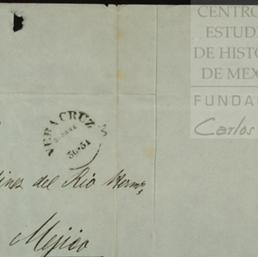 CENTRO
ESTUDI
DE HISTO
DE MEX
FUNDA
Carlos
VERACRUZ
30.51
inez del Rio Herms,
Mejico